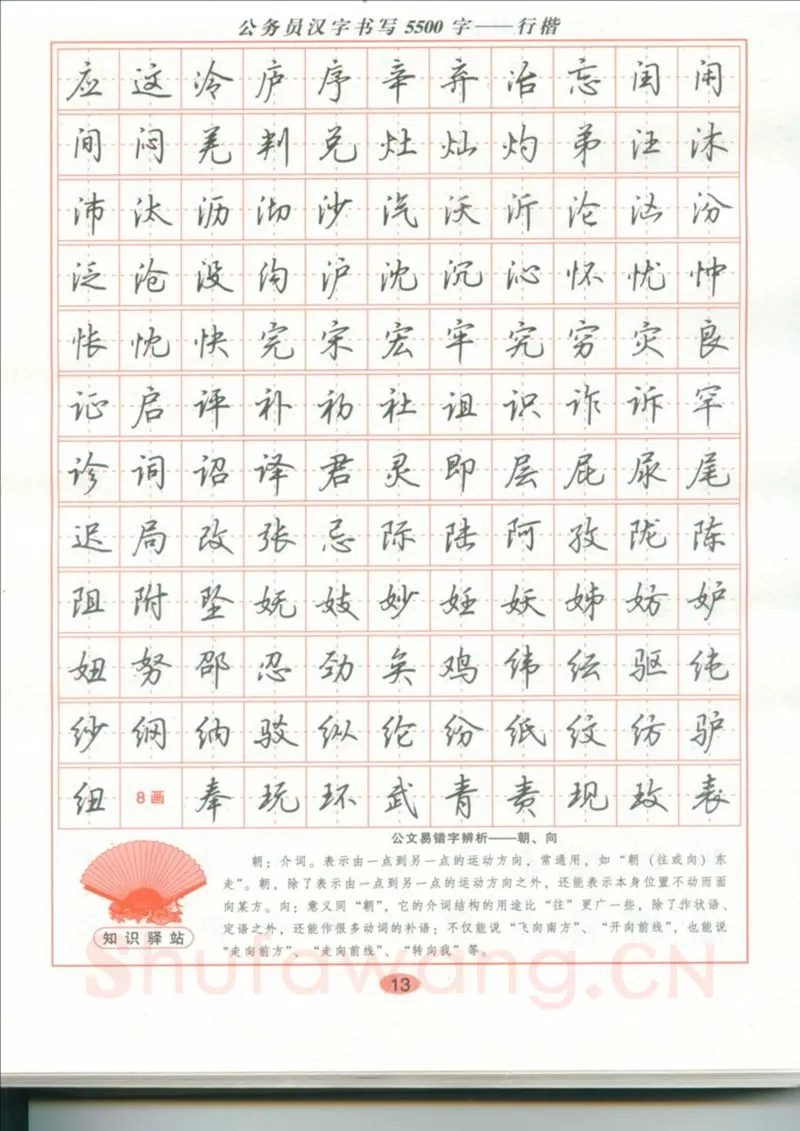 公务员汉字书写5500字——行楷
应这冷庐序辛弃冶忘闰闲
间闷羌判兑灶灿灼弟汪沐
沛汰沥沏沙汽沃沂沦汹汾
泛沧没沟沪沈沉沁怀忧忡
怅忱快完宋宏牢究穷灾良
证启评补初社诅识诈诉罕
诊词诏译君灵即层屁尿尾
迟局改张忌际陆阿孜陇陈
阻附坠妩妓妙妊妖姊妨妒
妞努邵忍劲矣鸡纬纭驱纯
纱纲纳驳纵纶纷纸纹纺驴
纽 8画 奉玩环武青责现玫表
公文易错字辨析——朝、向
朝：介词。表示由一点到另一点的运动方向，常通用，如“朝（往或向）东
走”。朝，除了表示由一点到另一点的运动方向之外，还能表示本身位置不动而面
向某方。向：意义同“朝”，它的介词结构的用途比“往”更广一些，除了作状语、
定语之外，还能作很多动词的补语：不仅能说“飞向南方”、“开向前线”，也能说
“走向前方”、“走向前线”、“转向我”等。
知识驿站
Shufawang.CN
13